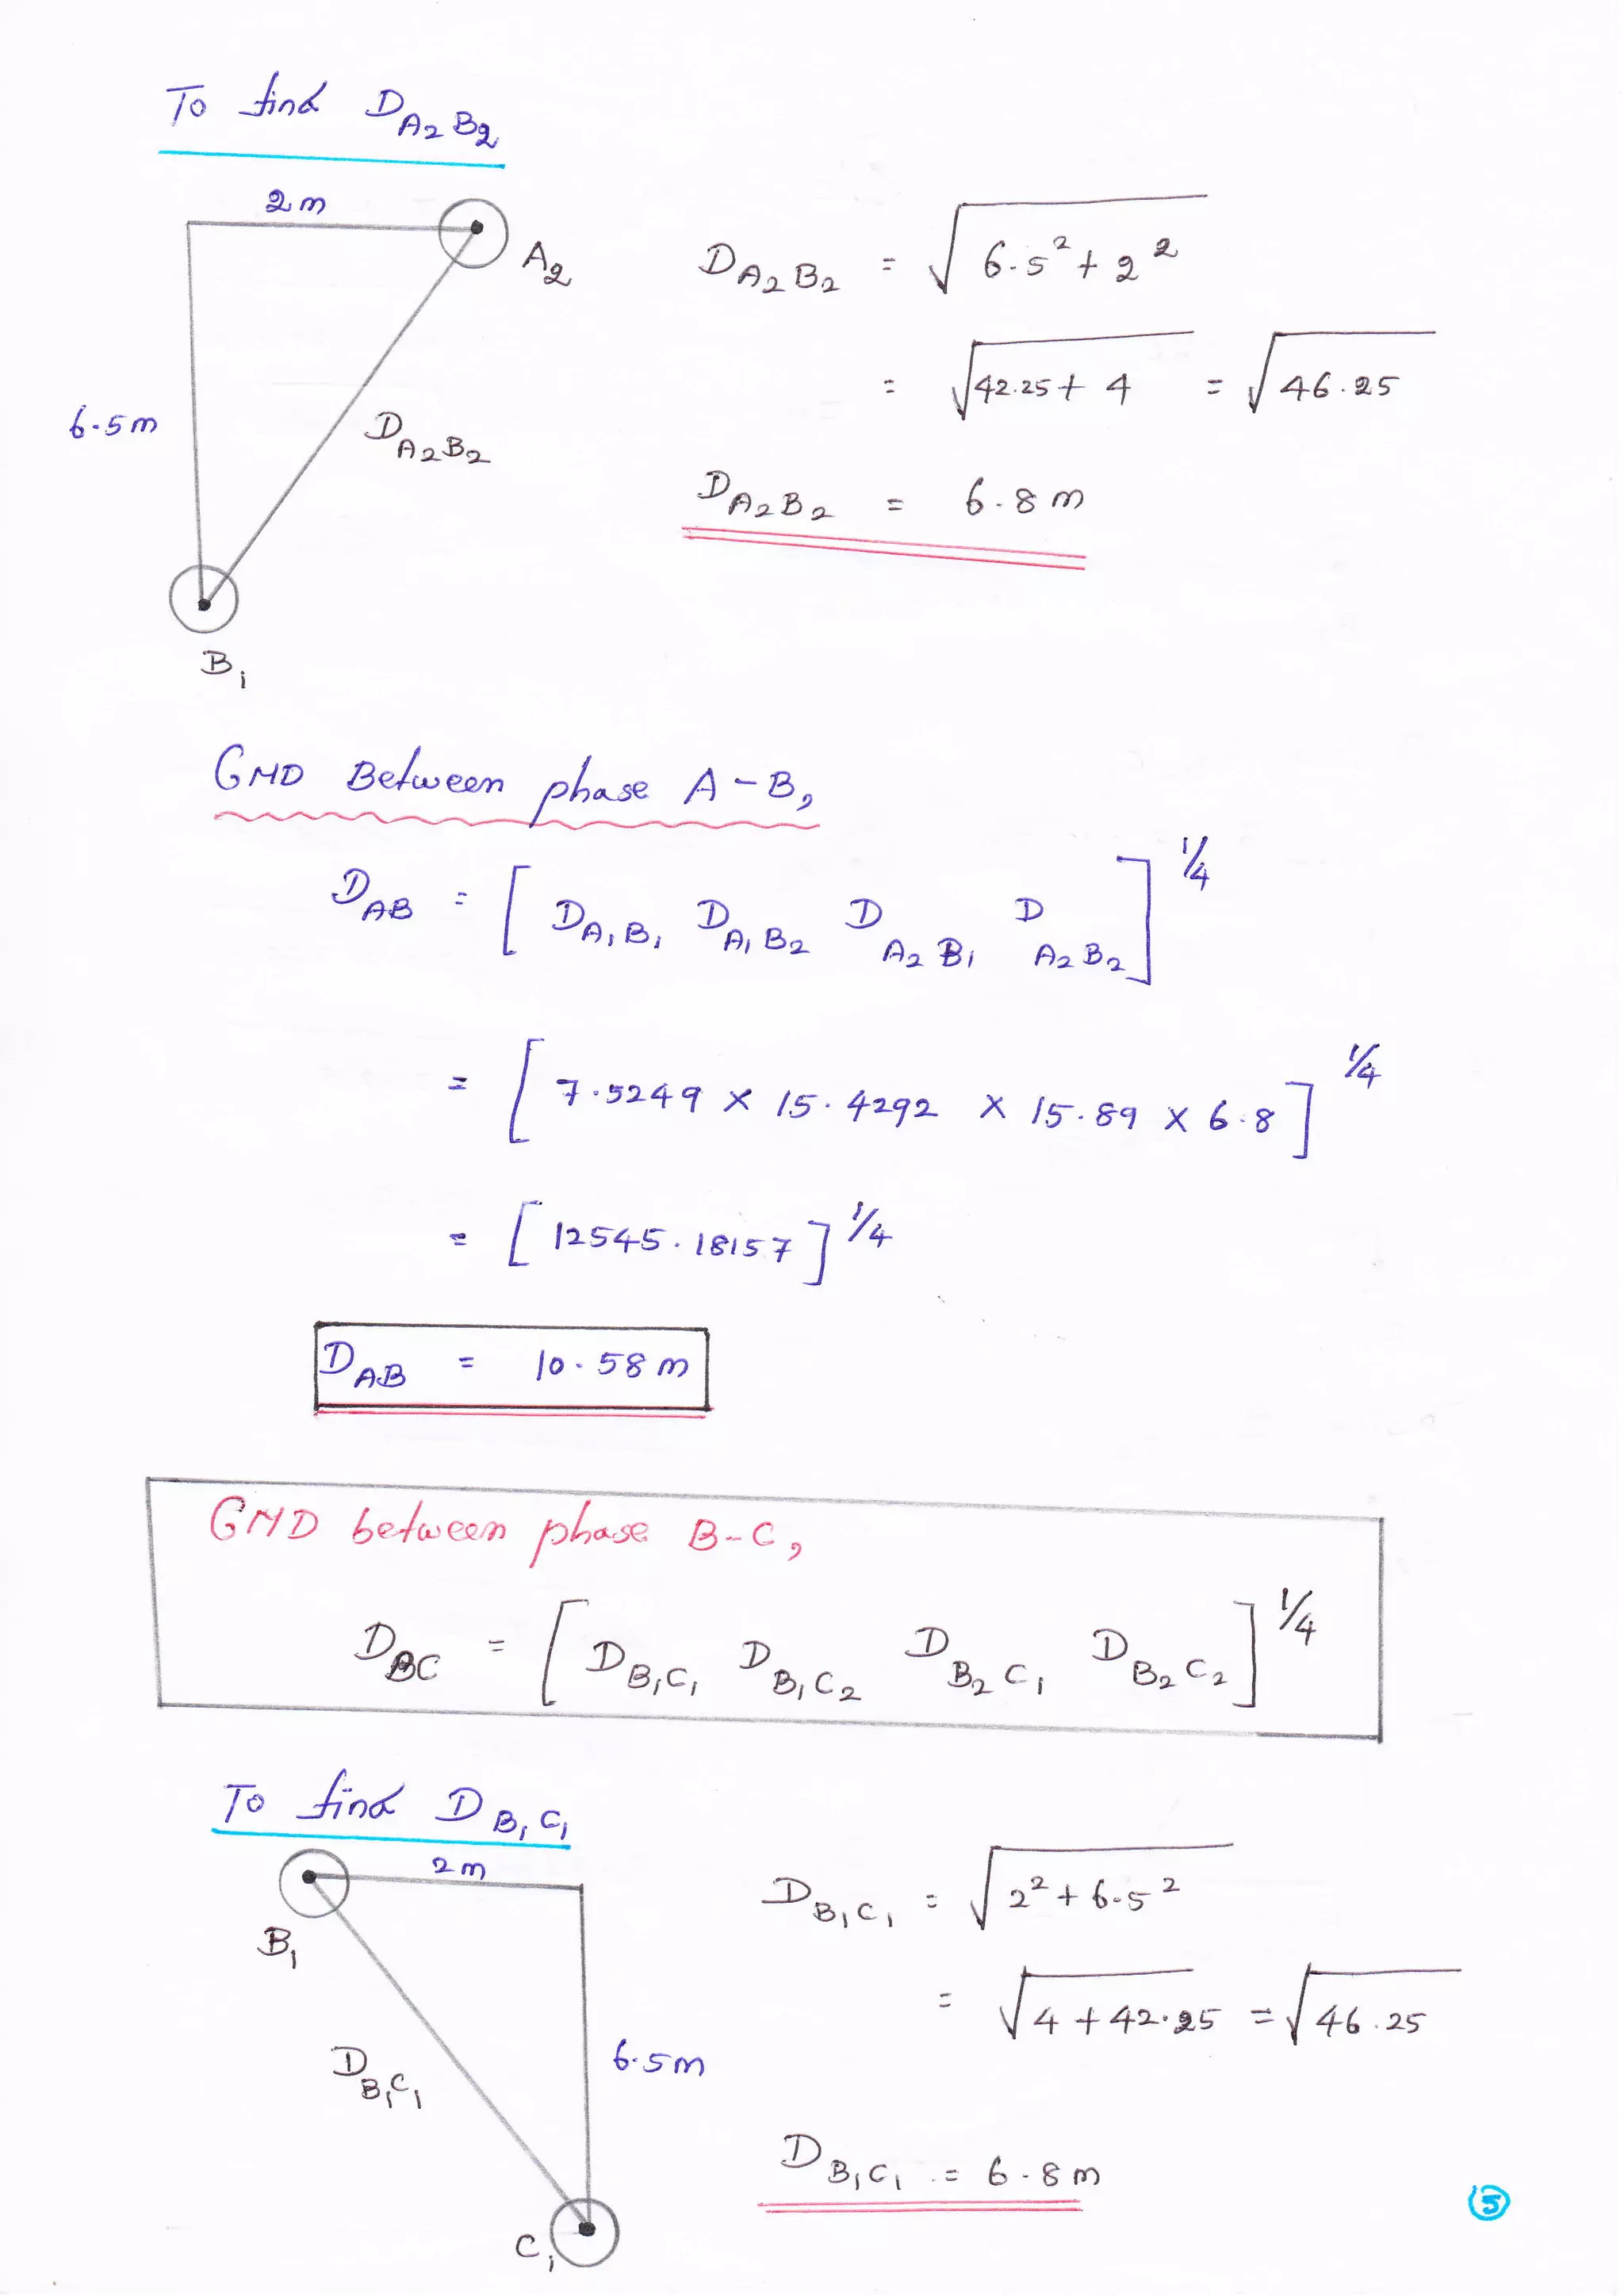 To find D_A2B2
2m
A2
D_A2B2 = √(6.5² + 2²)
= √(42.25 + 4) = √46.25
6.5m
D_A2B2
D_A2B2 = 6.8 m
B1
GMD Between phase A-B,
D_AB = [D_A1B1 D_A1B2 D_A2B1 D_A2B2]^1/4
= [7.5249 × 15.4292 × 15.89 × 6.8]^1/4
= [12545.18157]^1/4
D_AB = 10.58 m
GMD between phase B-C,
D_BC = [D_B1C1 D_B1C2 D_B2C1 D_B2C2]^1/4
To find D_B1C1
2m
B1
D_B1C1 = √(2² + 6.5²)
= √(4 + 42.25) = √46.25
D_B1C1
6.5m
D_B1C1 = 6.8 m
C1
5